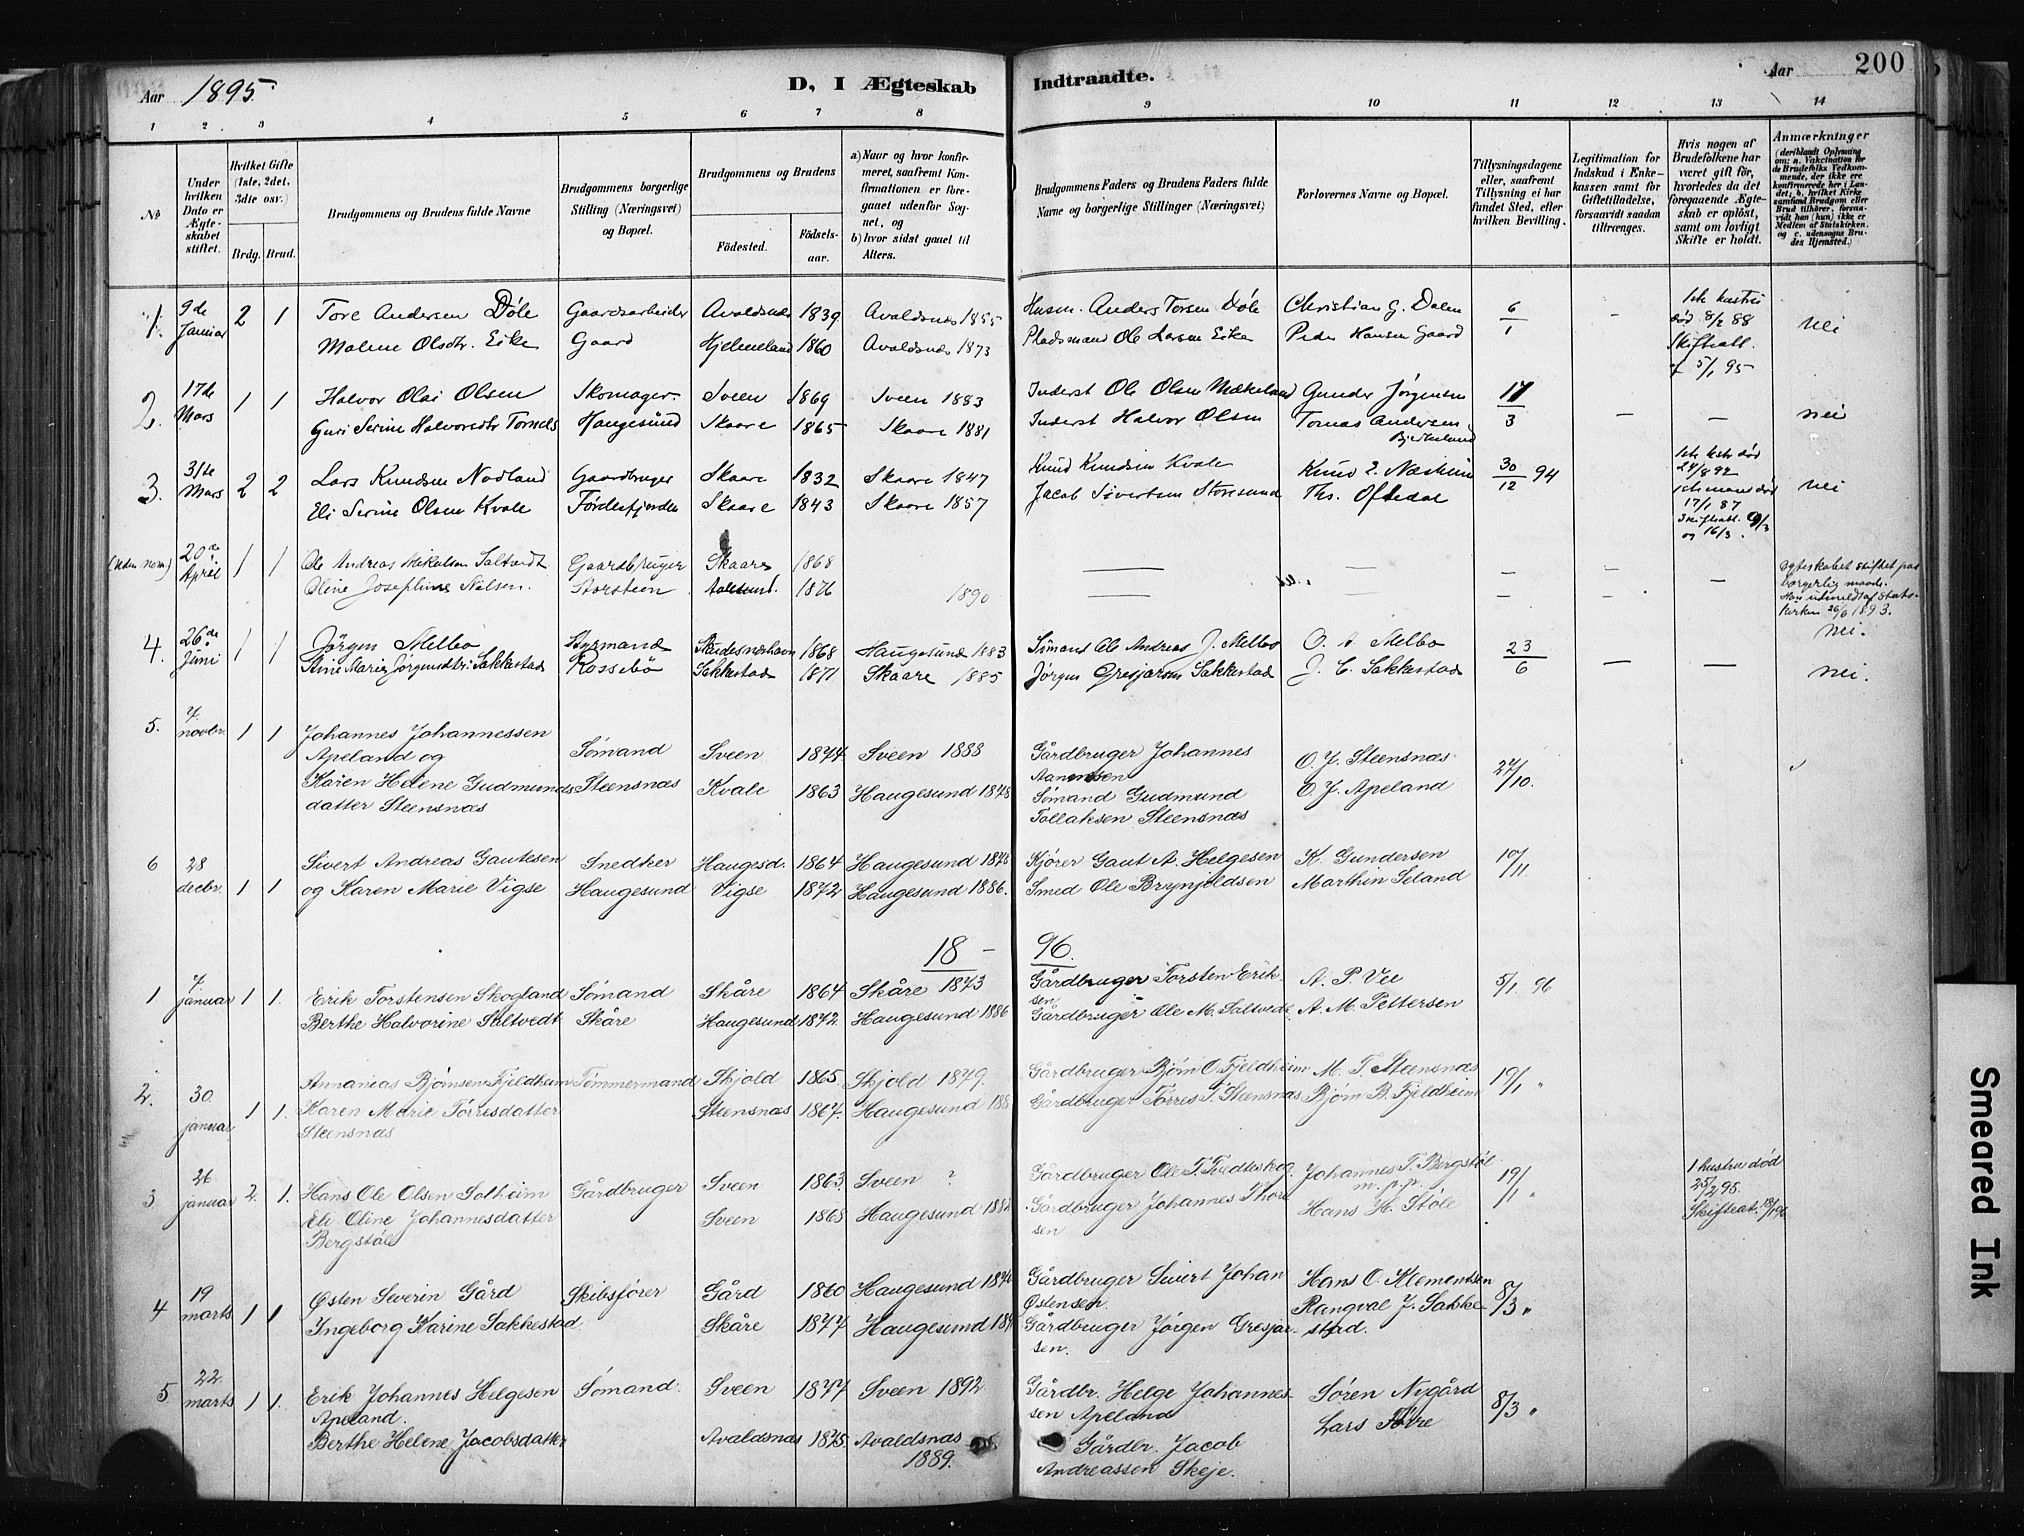 Aar 1895. D, I Ægteskab Indtraadte. Aar 200
1 2 3 4 5 6 7 8 9 10 11 12 13 14
No
Under hvilken Dato er Ægteskabet stiftet.
Hvilket Gifte (1ste, 2det, 3die osv.)
Brdg. Brud.
Brudgommens og Brudens fulde Navne
Brudgommens borgerlige Stilling (Næringsvei) og Bopæl.
Brudgommens og Brudens
Fødested. Fødselsaar.
a) Naar og hvor konfirmeret, saafremt Konfirmationen er foregaaet udenfor Sognet, og
b) hvor sidst gaaet til Alters.
Brudgommens Faders og Brudens Faders fulde Navne og borgerlige Stillinger (Næringsvei)
Forlovernes Navne og Bopæl.
Tillysningsdagene eller, saafremt Tillysning ei har fundet Sted, efter hvilken Bevilling.
Legitimation for Indskud i Enkekassen samt for Giftetilladelse, forsaavidt saadan tiltrænges.
Hvis nogen af Brudefolkene har været gift før, hvorledes da det foregaaende Ægteskab er opløst, samt om lovligt Skifte er holdt.
Anmærkninger (deriblandt Oplysning om: a. Vakcination for de Brudefolks Vedkommende, der ikke ere konfirmerede her i Landet; b. hvilket Kirkesamfund Brudgom eller Brud tilhører, forsaavidt han (hun) ikke er Medlem af Statskirken, og c. udensogns Brudes Hjemsted.)
1. 9de Januar 2 1 Tore Andersen Døle Gaardsarbeider Avaldsnæs 1839 Avaldsnæs 1855 Husm. Anders Torsen Døle Christian G. Dalen 6/1 - 1ste hustru død 8/2 88 Skifteatt. f 5/1 95 Nei
Malene Olsdtr. Eike Gaard Hjelmeland 1860 Avaldsnæs 1873 Pladsmand Ole Larsen Eike Peder Hansen Gaard
2. 17de Mars 1 1 Halvor Olai Olsen Skomager Sveen 1869 Sveen 1883 Inderst Ole Olsen Mækeland Gunder Jørgensen 17/3 - - Nei
Guri Serine Halvorsdtr Tornes Haugesund Skaare 1865 Skaare 1881 Inderst Halvor Olsen Tomas Andersen Bjerkelund
3. 31te Mars 2 2 Lars Knudsen Nodland Gaardbruger Skaare 1832 Skaare 1847 Knud Knudsen Kvale Knud 2. Næsheim 30/12 94 1ste kste død 24/8 92 Nei
Eli Serine Olsen Kvale Førdesfjorden Skaare 1843 Skaare 1857 Jacob Sivertsen Storesund Ths. Oftedal 1ste mand død 17/1 87 Skifteatt. 9/3 og 16/3.
(Uden nom.) 20de April 1 1 Ole Andreas Mikalsen Saltvedt Gaardbruger Skaare 1868 — — - - Egteskabet stiftet paa borgerlig maade.
Oline Josephine Nilsen. Storsteen Aalesund. 1876 1890 — — - Han udmeldt af Statskirken 26/6 1893.
4. 26de Juni 1 1 Jørgen Melbo Styrmand Skudesneshavn 1868 Haugesund 1883 Sømand Ole Andreas J. Melbo O. A Melbo 23/6 - - Nei.
Ane Marie Jørgensdtr. Sakkestad Rossebø Sakkestad 1871 Skaare 1885 Jørgen Gresjarsen Sakkestad J. C. Sakkestad Nei.
5. 7. novbr. 1 1 Johannes Johannessen
Apeland og Sømand Sveen 1874 Sveen 1888 Gårdbruger Johannes O. J. Steensnæs 27/10.
Karen Helene Gudmunds Steensnæs Kvale 1863 Haugesund 1878 Sømand Gudmund O. J. Apeland
datter Steensnæs Tollaksen Steensnæs
6 28 decbr. 1 1 Sivert Andreas Gautesen Snedker Haugesd. 1864 Haugesund 1878 Kjører Gaut A. Helgesen K. Gundersen 10/11.
og Karen Marie Vigse Haugesund Vigse 1872 Haugesund 1886. Smed Ole Brynjeldsen Marthin Seland
18 - 96.
1 7 januar 1 1. Erik Torstensen Skogland Sømand Skåre 1864 Skåre 1873 Gårdbruger Torsten Eriksen A. P. Vee 5/1. 96
Berthe Halvorine Saltvedt Skåre Haugesund 1872. Haugesund 1886 Gårdbruger Ole M. Saltvedt. A. M. Pettersen
2. 30. januar 1 1. Annanias Bjørnsen Fjeldheim Tømmermand Skjold 1865. Skjold 1879. Gårdbruger Bjørn O. Fjeldheim M. T. Steensnæs 19/1 "
Karen Marie Tørresdatter Steensnæs 1867. Haugesund 188 Gårdbruger Tørres T. Steensnæs Bjørn B. Fjeldheim
Steensnæs
3 26 januar 2. 1. Hans Ole Olsen Solheim Gårdbruger Sveen 1863. Sveen ? Gårdbruger Ole T. Tvedteskog. Johannes T. Bergstøl m. p. p. 19/1 " 1 hustru død 25/2 95. Skifteat. 18/1 96.
Eli Oline Johannesdatter Sveen 1868 Haugesund 1882 Gårdbruger Johannes Thoresen Hans H. Støle
Bergstøle
4 19 marts 1 1 Østen Severin Gård Skibsfører Gård 1860 Haugesund 1874 Gårdbruger Sivert Johan Østensen. Hans O. Klementsen 8/3 "
Ingeborg Karine Sakkestad Skåre 1877 Haugesund 189 Gårdbruger Jørgen Gresjarsen. Rangval J. Sakkestad.
5 22. marts 1 1. Erik Johannes Helgesen Sømand. Sveen 1877 Sveen 1892 Gårdbr. Helge Johannessen Apeland Søren Nygård 8/3 "
Apeland. Lars Tøvre
Berthe Helene Jacobsdatter Avaldsnæs 1875. Avaldsnæs 1889. Gårdbr. Jacob
Andreassen Skeje.
Smeared Ink